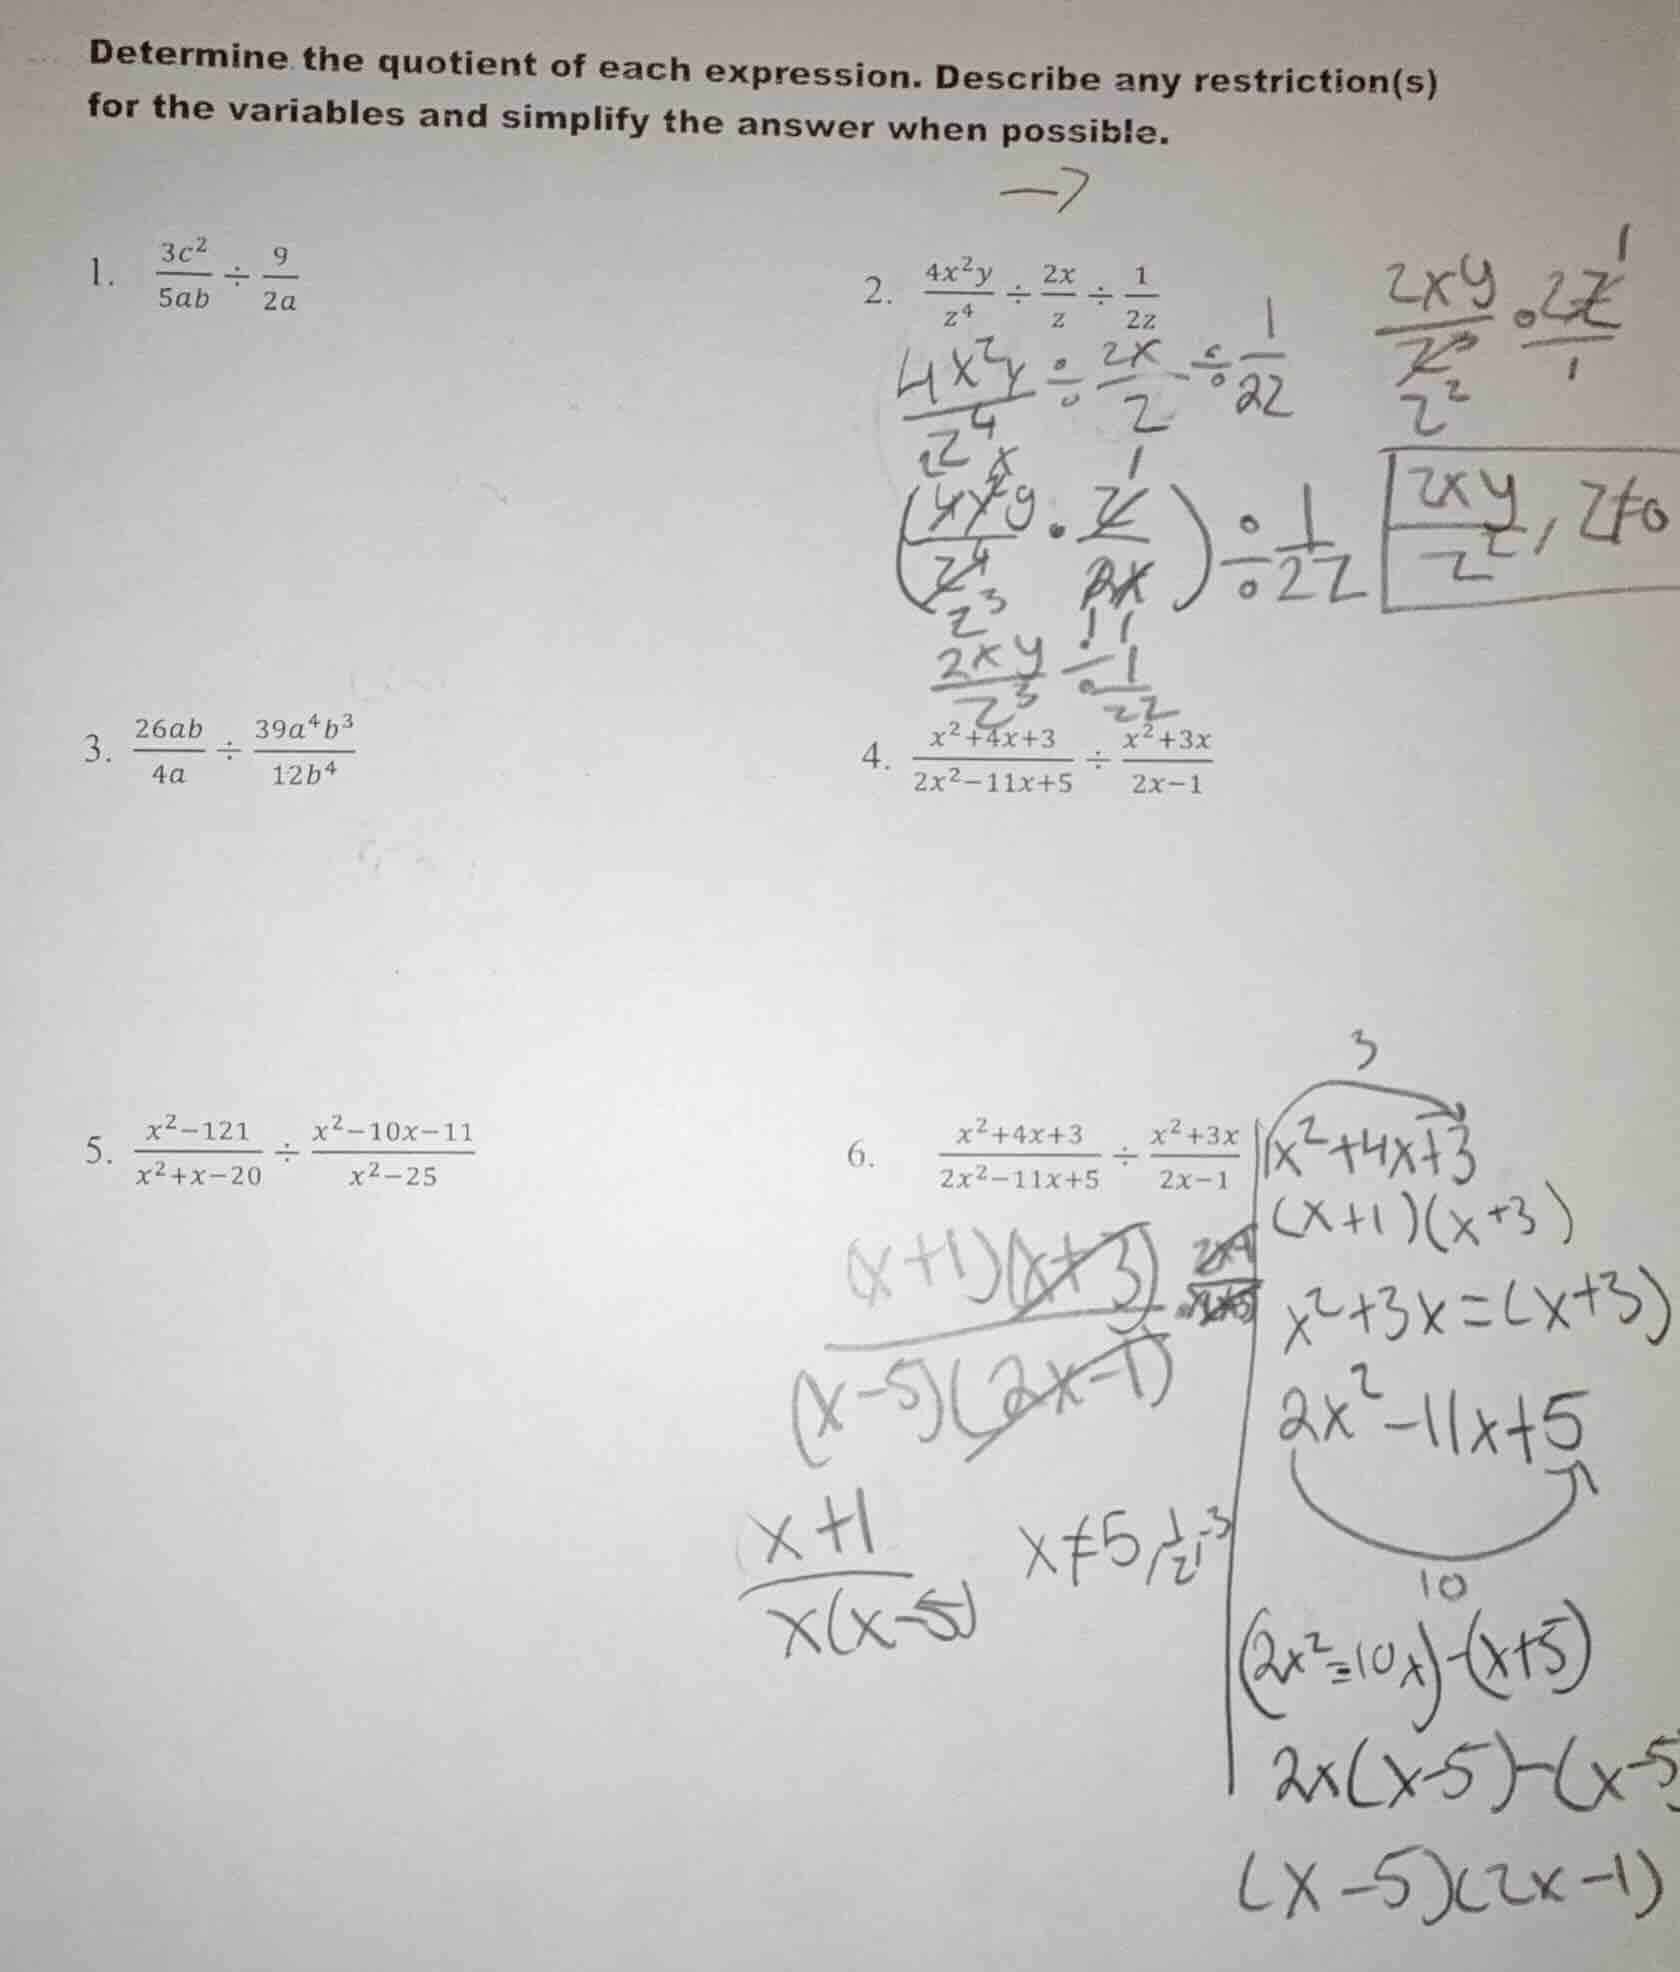 Determine the quotient of each expression. Describe any restriction(s)
for the variables and simplify the answer when possible.
→
1. 3c²/5ab ÷ 9/2a
2. 4x²y/z⁴ ÷ 2x/z ÷ 1/2z
4x²y/z⁴ ÷ 2x/z ÷ 1/2z
(4x²y/z⁴ · z/2x) ÷ 1/2z
2xy/z³ ÷ 1/2z
2xy/z³ · 2z/1
z²
2xy/z², z≠0
3. 26ab/4a ÷ 39a⁴b³/12b⁴
4. x²+4x+3/2x²−11x+5 ÷ x²+3x/2x−1
5. x²−121/x²+x−20 ÷ x²−10x−11/x²−25
6. x²+4x+3/2x²−11x+5 ÷ x²+3x/2x−1
(x+1)(x+3)/(x-5)(2x-1)
x+1/x(x-5) x≠5, 1/2, -3
3
x²+4x+3
(x+1)(x+3)
x²+3x=(x+3)
2x²-11x+5
10
(2x²-10x)-(x+5)
2x(x-5)-(x-5)
(x-5)(2x-1)